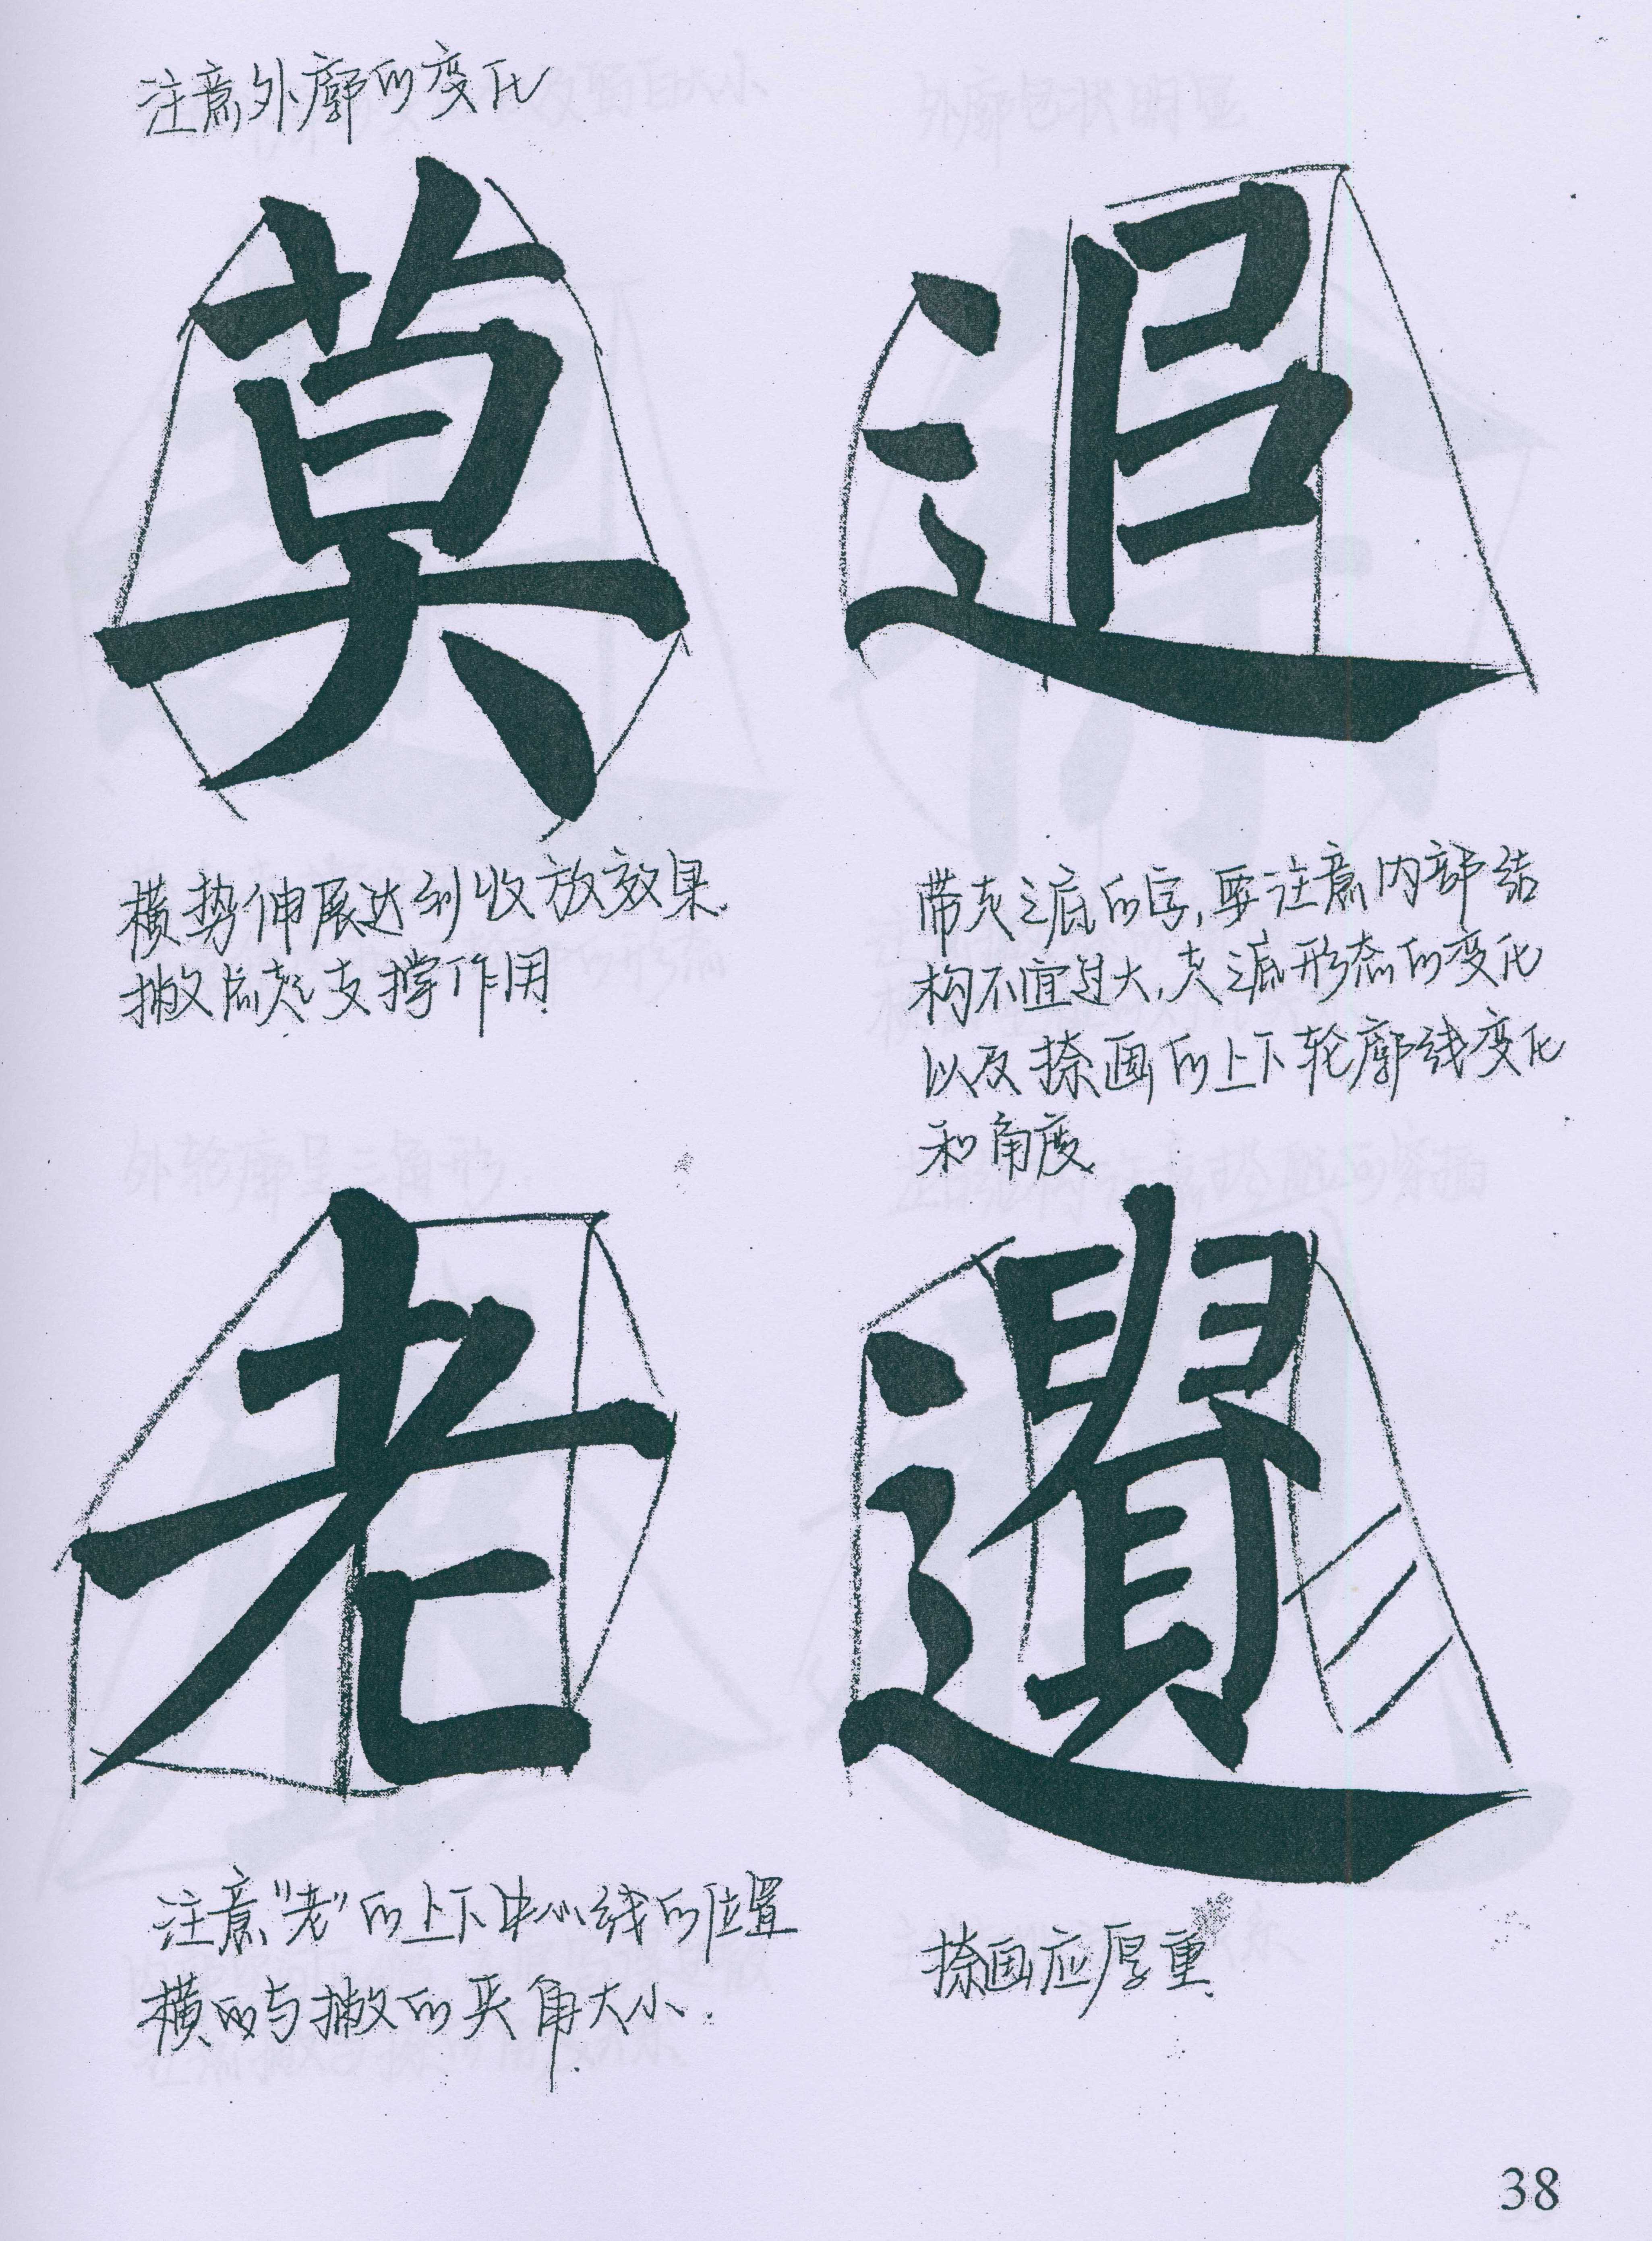 注意外廓的变化
莫
横势伸展达到收放效果.
撇点起支撑作用.
追
带走之底的字,要注意内部结
构不宜过大,走之底形态的变化
以及捺画的上下轮廓线变化
和角度.
老
注意"老"的上下中心线的位置
横的与撇的夹角大小.
遺
捺画应厚重.
38